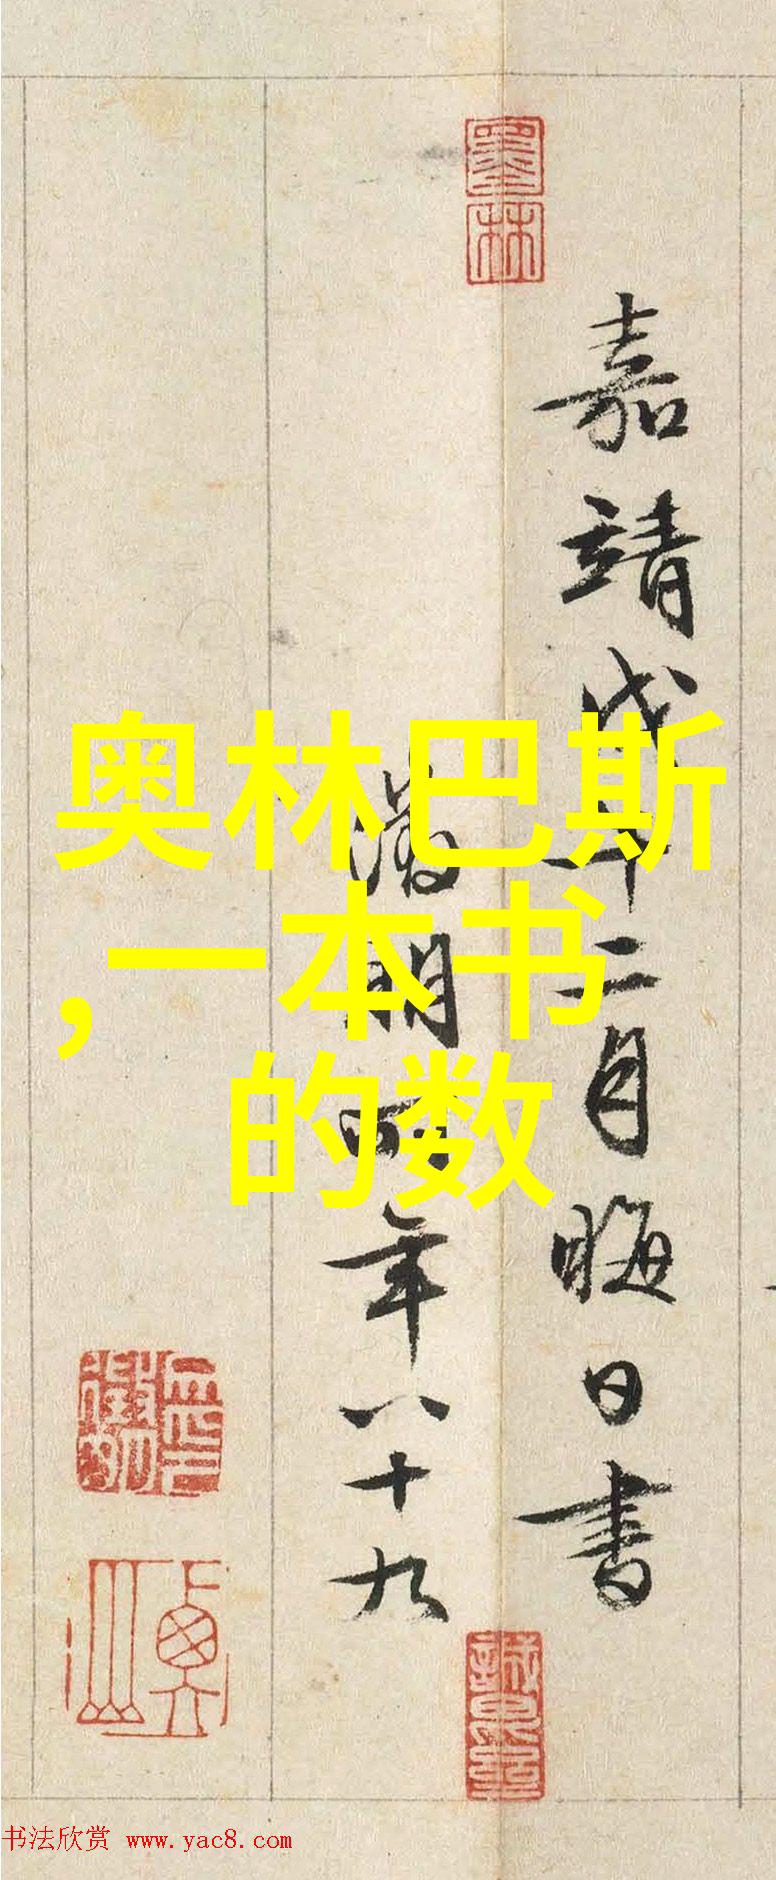 嘉靖戊午二月晦日書
徵明時年八十九
奥林巴斯
,一本书
的数
墨林
书法欣赏 www.yac8.com